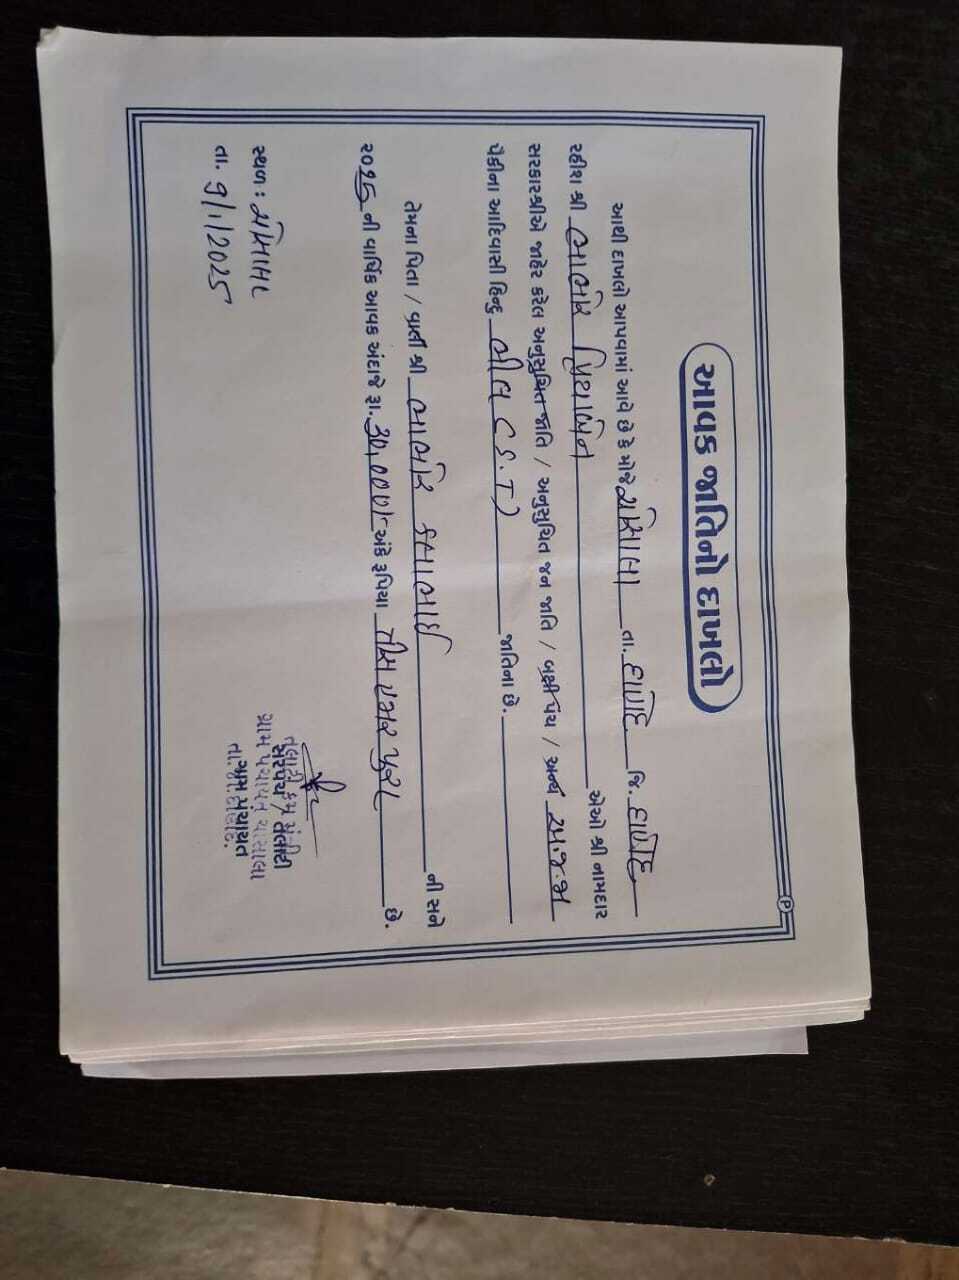 આવક જાતિનો દાખલો
આથી દાખલો આપવામાં આવે છે કે મોજે તા. દાહોદ જિ. દાહોદ
રહીશ શ્રી ભાભોર પ્રિયાબેન એઓ શ્રી નામદાર
સરકારશ્રીએ જાહેર કરેલ અનુસુચિત જાતિ / અનુસુચિત જન જાતિ / બક્ષીપંચ / અન્ય અ.જ.જા
પૈકીના આદિવાસી હિન્દુ ભીલ (S.T) જાતિના છે.
તેમના પિતા / શ્રી ભાભોર ની સને
૨૦૨૫ ની વાર્ષિક આવક અંદાજે રૂા. 30,000/- અંકે રૂપિયા ત્રીસ હજાર પુરા છે.
સ્થળ :
તા. 9/1/2025
તલાટી કમ મંત્રી
સરપંચ / તલાટી
ગ્રામ પંચાયત
ગ્રામ પંચાયત
તા.જી.દાહોદ.